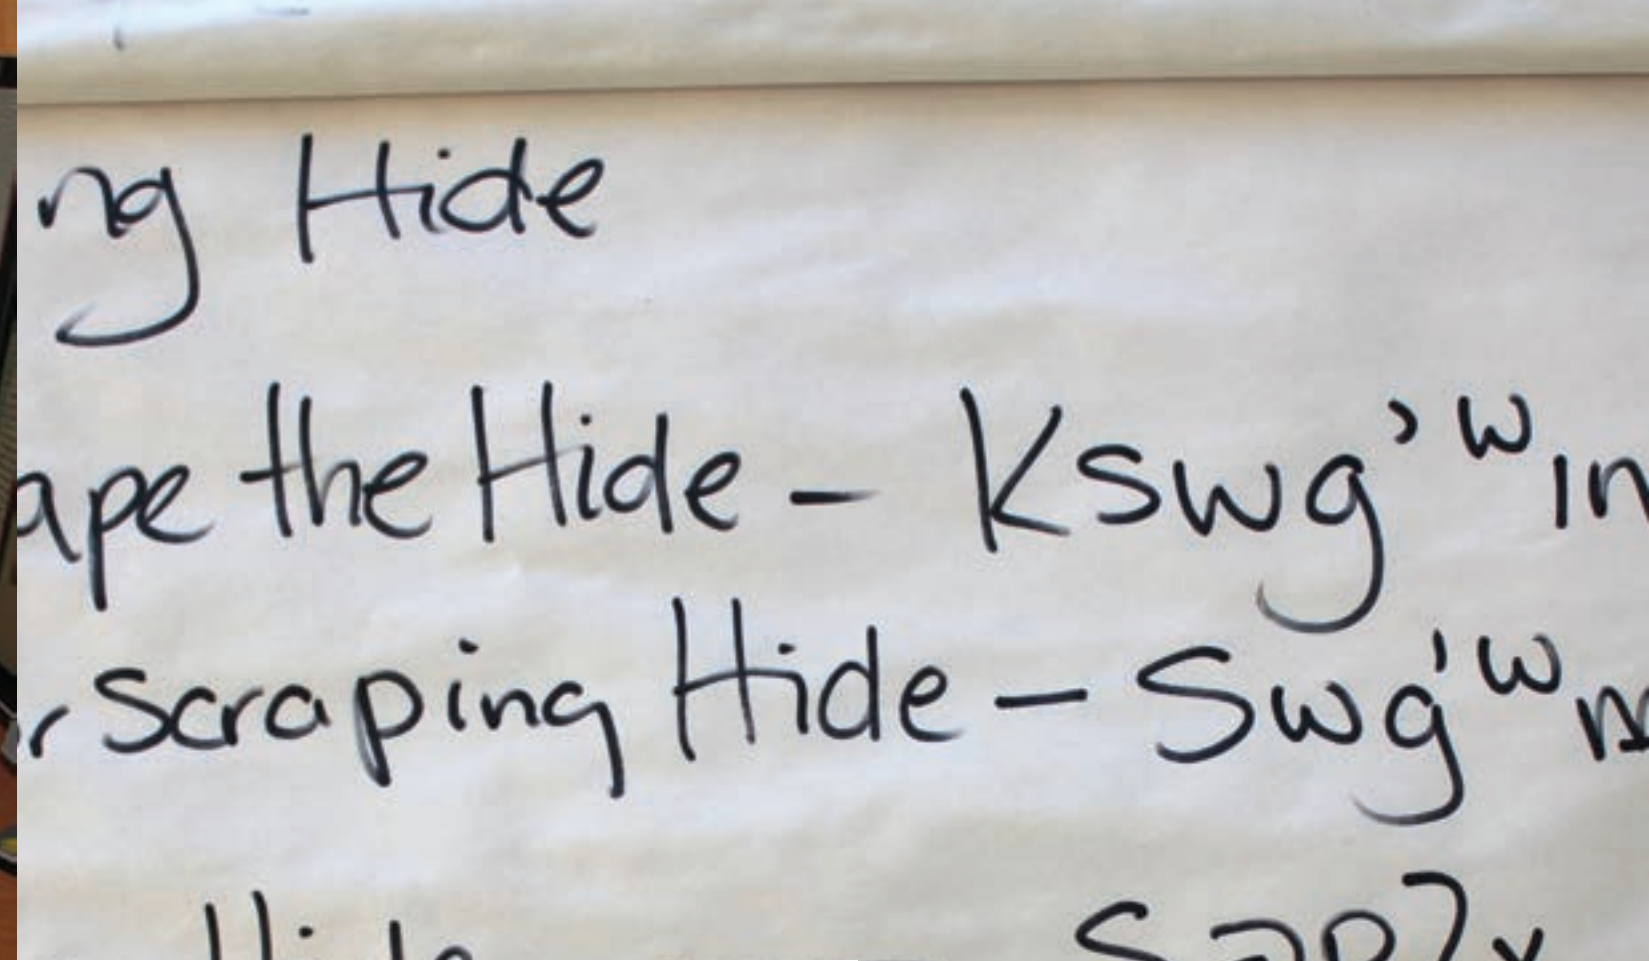 ng Hide
ape the Hide - Kswg'ʷin
r scraping Hide - Swg'ʷn
Hide